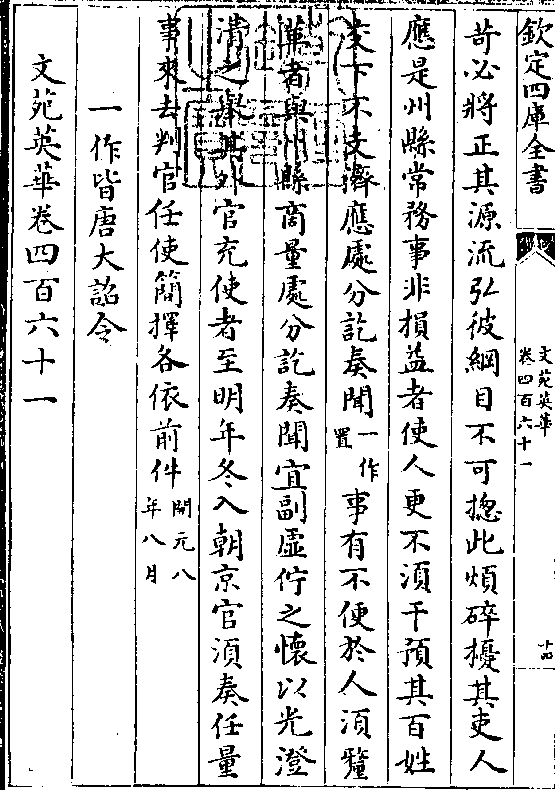 欽定四庫全書
文苑英華
卷四百六十一
十四
苛必將正其源流弘彼綱目不可揔此煩碎擾其吏人
應是州縣常務事非損益者使人更不湏干預其百姓
之下不支濟應處分訖奏聞一作置事有不便於人湏釐
革者與州縣商量處分訖奏聞宜副虛佇之懷以光澄
清之舉其外官充使者至明年冬入朝京官湏奏任量
事來去判官任使簡擇各依前件開元八年八月
一作皆唐大詔令
文苑英華卷四百六十一